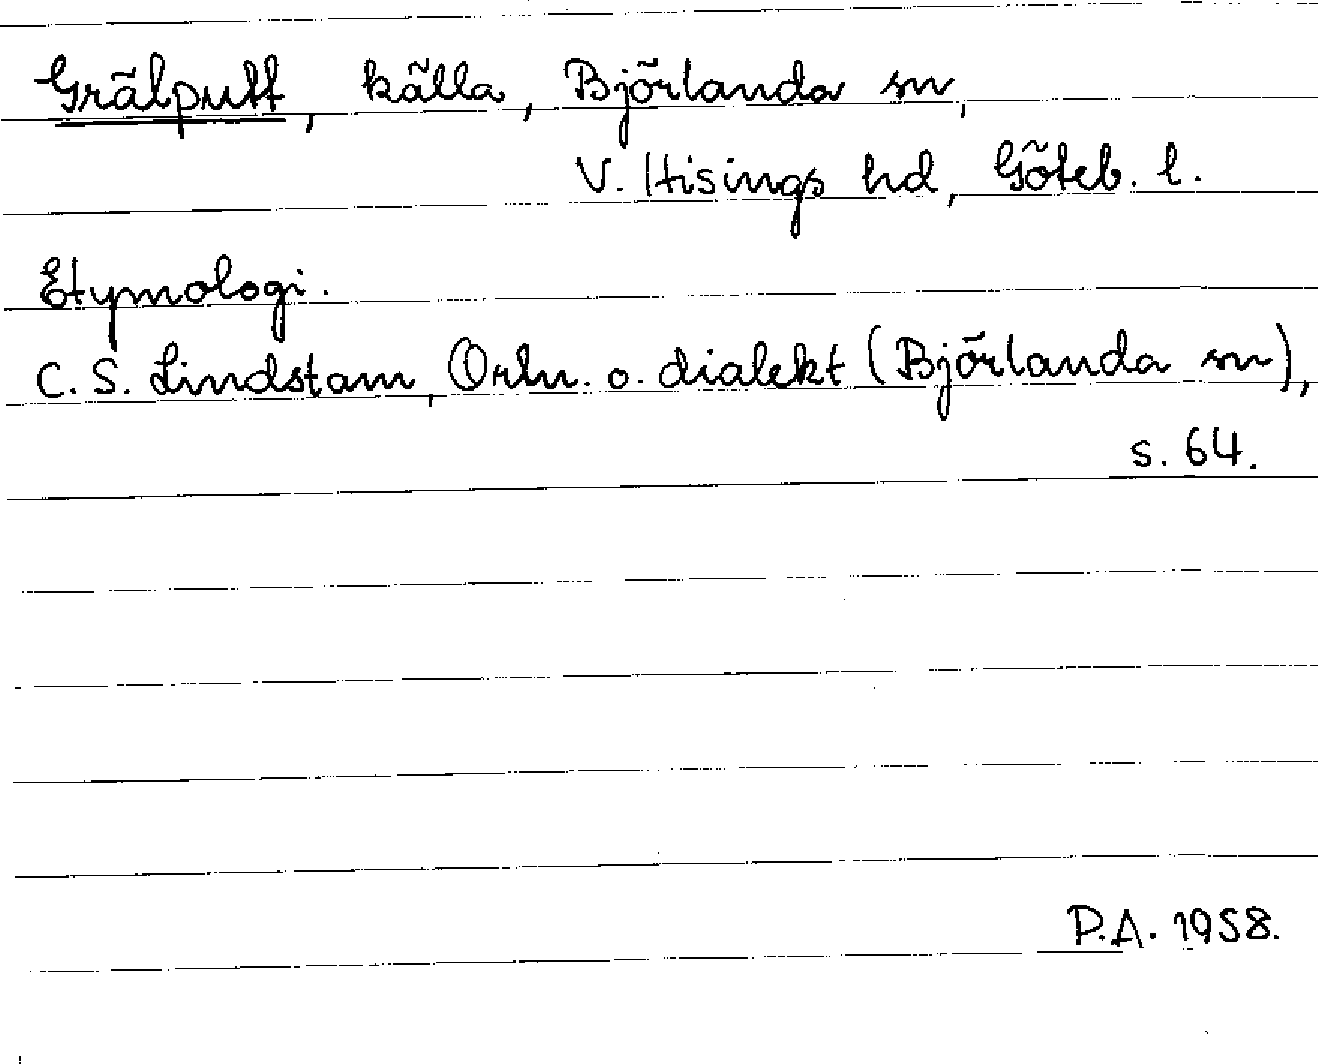 Grälputt, källa, Björlanda sn,
V. Hisings hd, Göteb. l.
Etymologi.
C. S. Lindstam, Ortn. o. dialekt (Björlanda sn),
s. 64.
P.A. 1958.